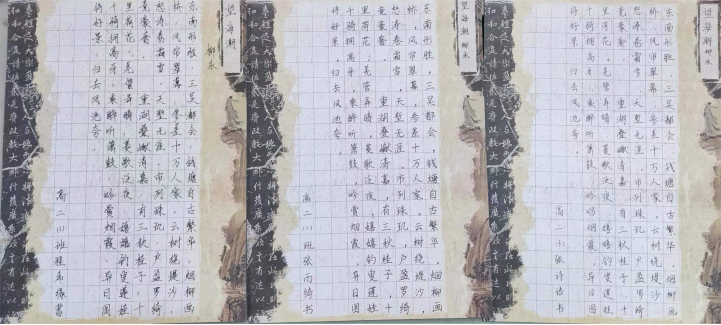 望海潮
柳永
东南形胜，三吴都会，钱塘自古繁华。烟柳画
桥，风帘翠幕，参差十万人家。云树绕堤沙，
怒涛卷霜雪，天堑无涯。市列珠玑，户盈罗绮
竞豪奢。重湖叠巘清嘉，有三秋桂子，十
里荷花。羌管弄晴，菱歌泛夜，嬉嬉钓叟莲娃
千骑拥高牙，乘醉听箫鼓，吟赏烟霞。异日图
将好景，归去凤池夸。
高二(1)班程
望海潮 柳永
东南形胜，三吴都会，钱塘自古繁华，烟柳画
桥，风帘翠幕，参差十万人家。云树绕堤沙，
怒涛卷霜雪，天堑无涯。市列珠玑，户盈罗绮
竞豪奢。重湖叠巘清嘉，有三秋桂子，十
里荷花。羌管弄晴，菱歌泛夜，嬉嬉钓叟莲娃
千骑拥高牙，乘醉听箫鼓，吟赏烟霞。异日图
将好景，归去凤池夸。
高二(1)班张雨绮书
望海潮 柳永
东南形胜，三吴都会，钱塘自古繁华，烟柳画
桥，风帘翠幕，参差十万人家。云树绕堤沙，
怒涛卷霜雪，天堑无涯。市列珠玑，户盈罗绮
竞豪奢。重湖叠巘清嘉，有三秋桂子，十
里荷花。羌管弄晴，菱歌泛夜，嬉嬉钓叟莲娃
千骑拥高牙，乘醉听箫鼓，吟赏烟霞。异日图
将好景，归去凤池夸。
高二(1)张诗语书